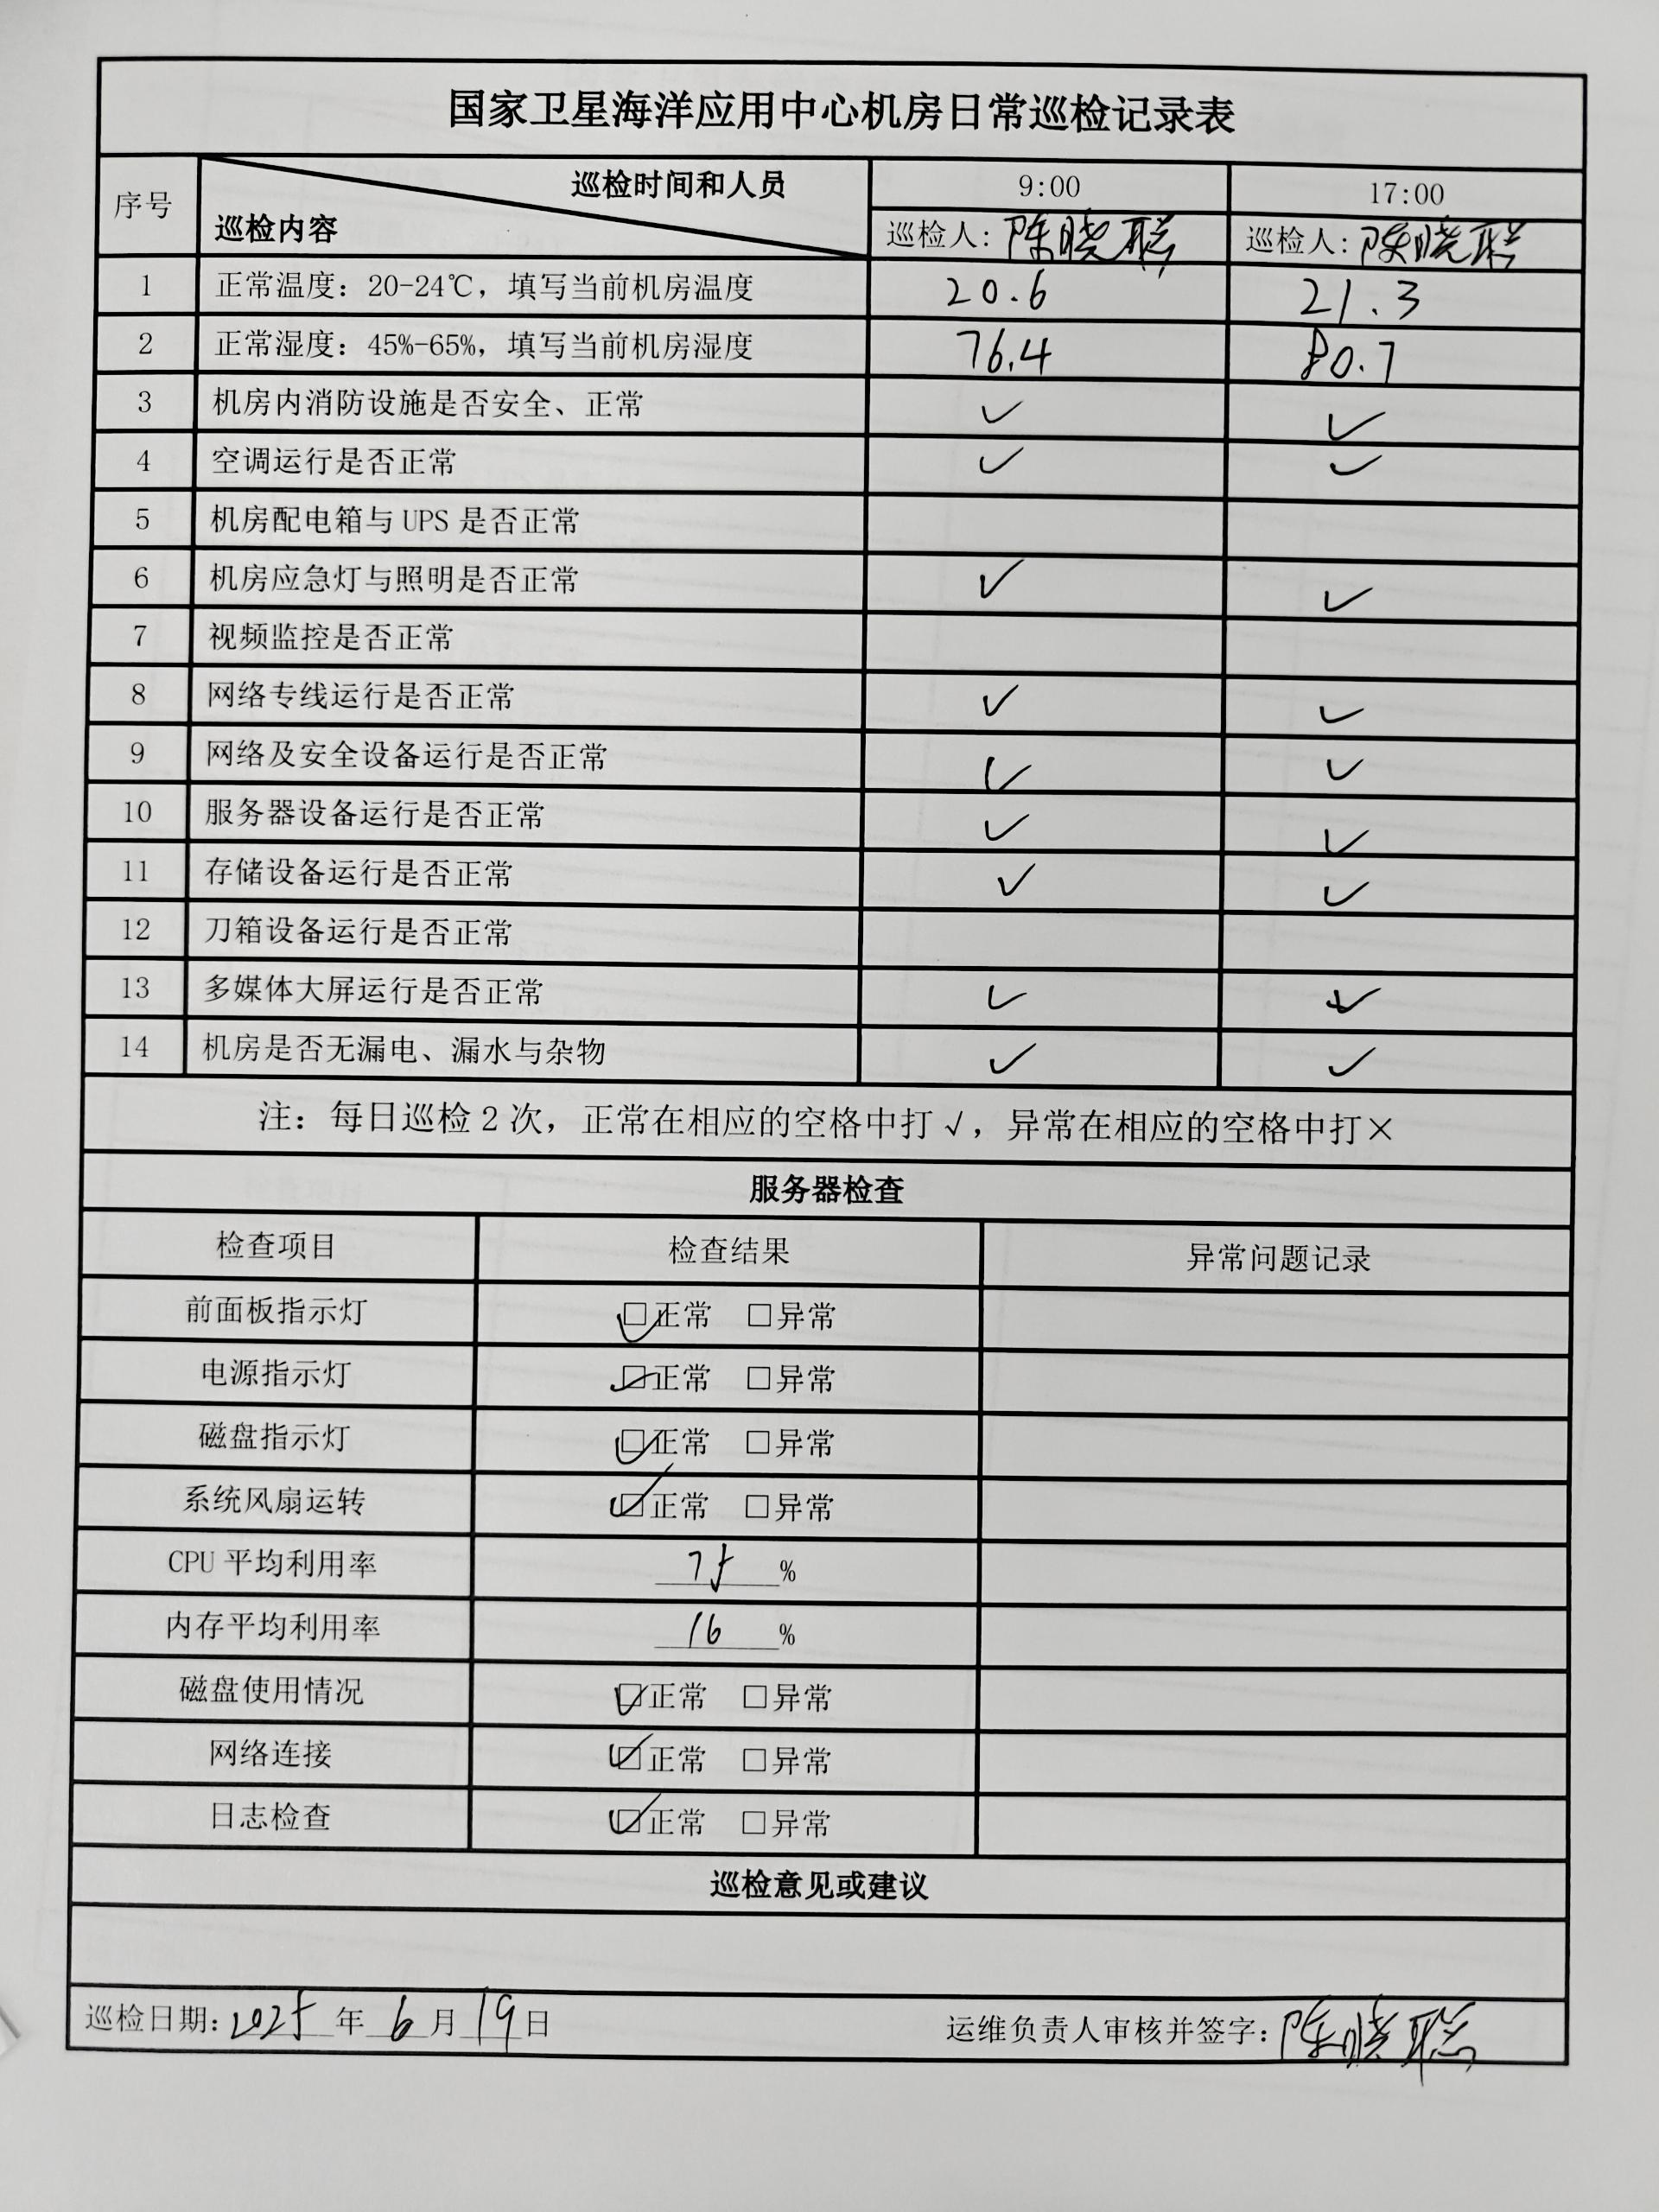 国家卫星海洋应用中心机房日常巡检记录表
序号 巡检时间和人员 巡检内容 9:00 17:00
巡检人:陈晓聪 巡检人:陈晓聪
1 正常温度：20-24℃，填写当前机房温度 20.6 21.3
2 正常湿度：45%-65%，填写当前机房湿度 76.4 80.7
3 机房内消防设施是否安全、正常 ✓ ✓
4 空调运行是否正常 ✓ ✓
5 机房配电箱与 UPS 是否正常
6 机房应急灯与照明是否正常 ✓ ✓
7 视频监控是否正常
8 网络专线运行是否正常 ✓ ✓
9 网络及安全设备运行是否正常 ✓ ✓
10 服务器设备运行是否正常 ✓ ✓
11 存储设备运行是否正常 ✓ ✓
12 刀箱设备运行是否正常
13 多媒体大屏运行是否正常 ✓ ✓
14 机房是否无漏电、漏水与杂物 ✓ ✓
注：每日巡检 2 次，正常在相应的空格中打 √，异常在相应的空格中打×
服务器检查
检查项目 检查结果 异常问题记录
前面板指示灯 ☑正常 □异常
电源指示灯 ☑正常 □异常
磁盘指示灯 ☑正常 □异常
系统风扇运转 ☑正常 □异常
CPU 平均利用率 75 %
内存平均利用率 16 %
磁盘使用情况 ☑正常 □异常
网络连接 ☑正常 □异常
日志检查 ☑正常 □异常
巡检意见或建议
巡检日期:2025年 6 月 19 日 运维负责人审核并签字:陈晓聪